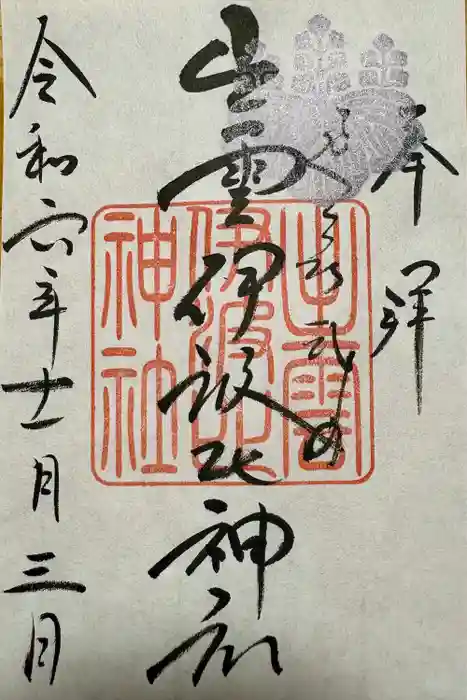 奉拝
出雲伊波比神社
出雲
伊波比
神社
令和六年十一月三日